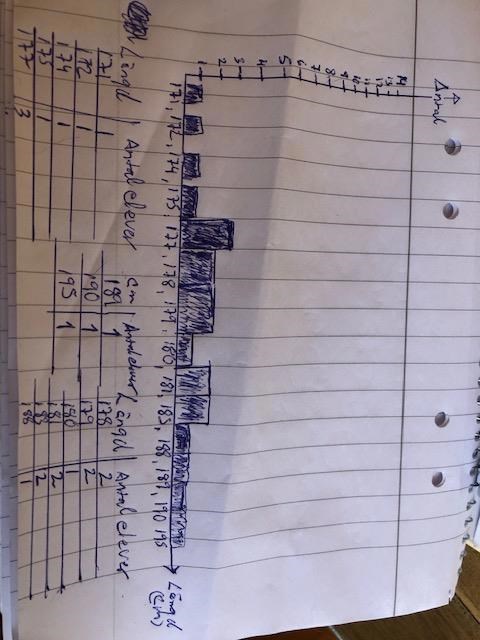 Antal
14
13
12
11
10
9
8
7
6
5
4
3
2
1
171, 172, 174, 175, 177, 178, 179, 180, 181, 185, 188, 189, 190 195
Längd
(cm)
Längd | Antal elever
171 1
172 1
174 1
175 1
177 3
cm | Antal elever
189 1
190 1
195 1
Längd | Antal elever
178 2
179 2
180 1
181 2
185 2
188 1